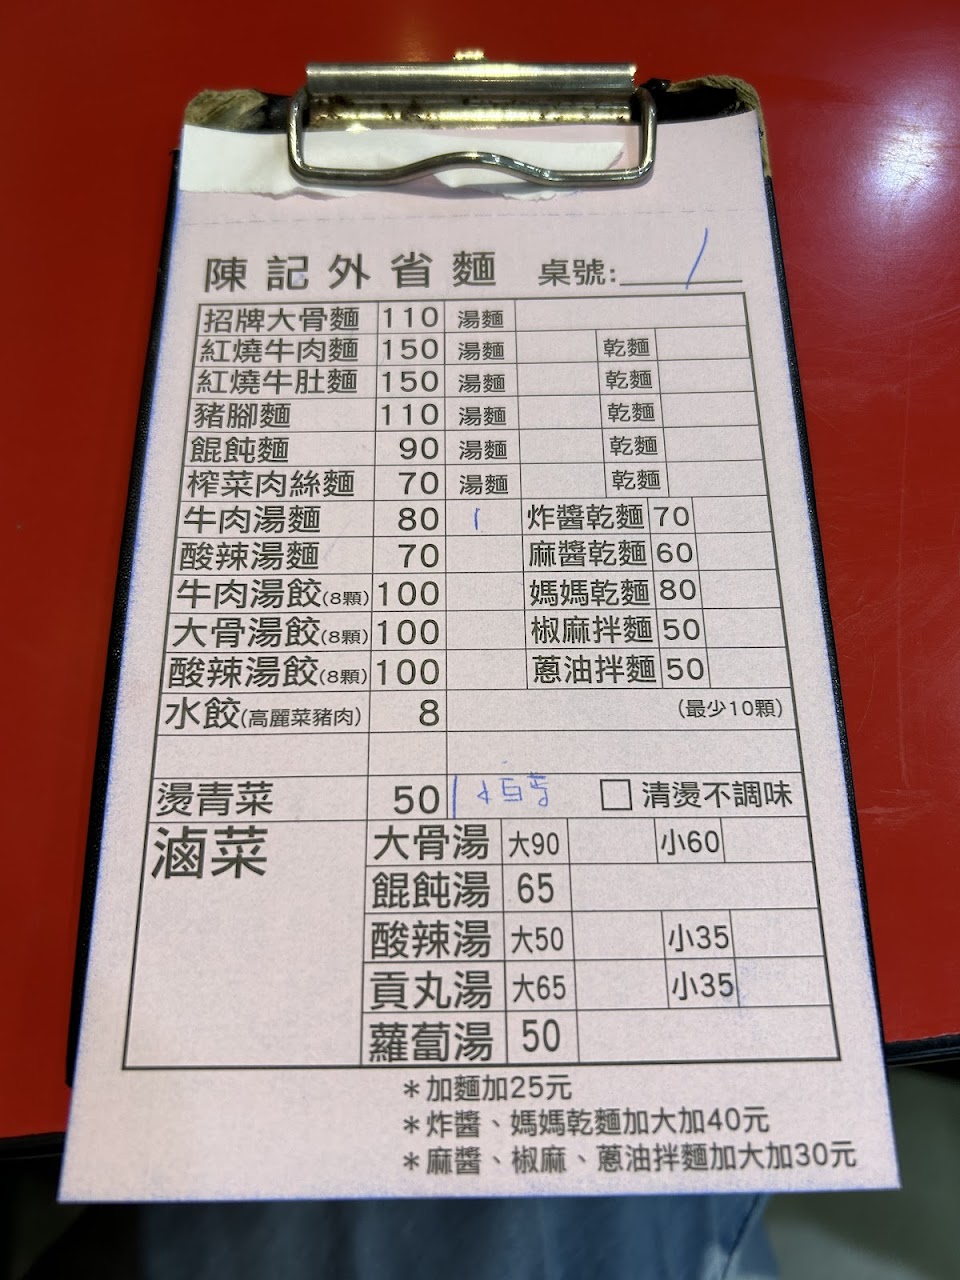 陳記外省麵 桌號: 1
招牌大骨麵 110 湯麵
紅燒牛肉麵 150 湯麵 乾麵
紅燒牛肚麵 150 湯麵 乾麵
豬腳麵 110 湯麵 乾麵
餛飩麵 90 湯麵 乾麵
榨菜肉絲麵 70 湯麵 乾麵
牛肉湯麵 80 1 炸醬乾麵 70
酸辣湯麵 70 麻醬乾麵 60
牛肉湯餃(8顆) 100 媽媽乾麵 80
大骨湯餃(8顆) 100 椒麻拌麵 50
酸辣湯餃(8顆) 100 蔥油拌麵 50
水餃(高麗菜豬肉) 8 (最少10顆)
燙青菜 50 1 □ 清燙不調味
滷菜 大骨湯 大90 小60
餛飩湯 65
酸辣湯 大50 小35
貢丸湯 大65 小35
蘿蔔湯 50
*加麵加25元
*炸醬、媽媽乾麵加大加40元
*麻醬、椒麻、蔥油拌麵加大加30元